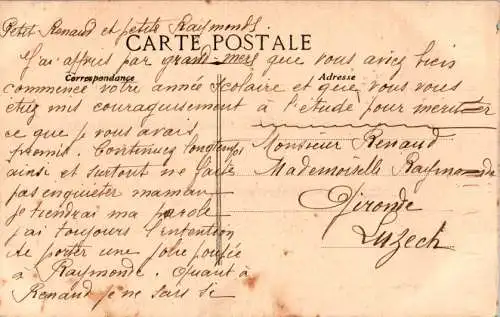 Petit Renaud et petite Raymonde.
CARTE POSTALE
J'ai appris par grand-mère que vous aviez bien
Correspondance
Adresse
commencé votre année scolaire et que vous vous
étiez mis courageusement à l'étude pour mériter
ce que je vous avais
promis. Continuez longtemps
ainsi et surtout ne faite
pas enquiéter maman
je tiendrai ma parole
j'ai toujours l'intention
de porter une jolie poupée
à Raymonde. Quant à
Renaud je ne sais si
Monsieur Renaud
Mademoiselle Raymonde
Gironde
Luzech